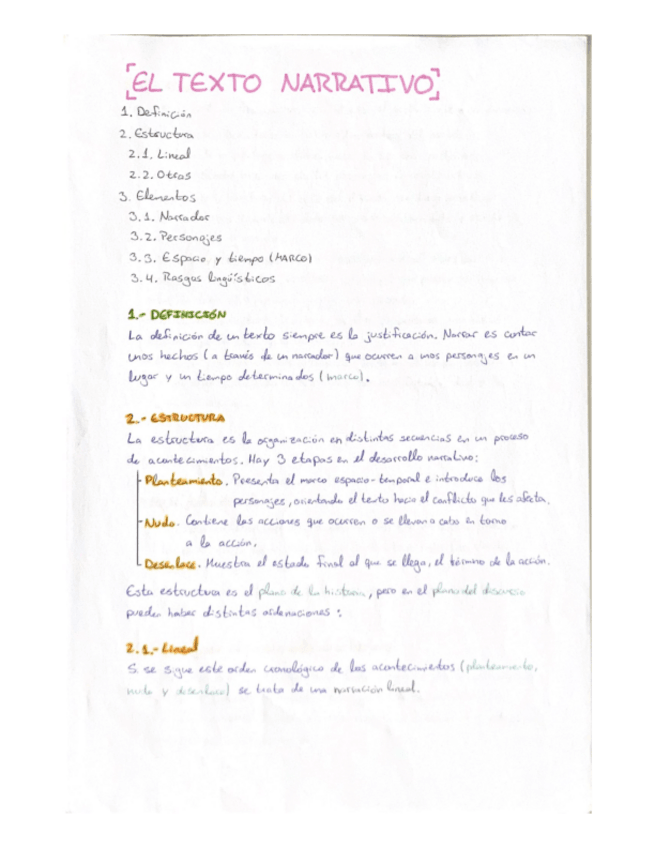 [EL TEXTO NARRATIVO]
1. Definición
2. Estructura
2.1. Lineal
2.2. Otras
3. Elementos
3.1. Narrador
3.2. Personajes
3.3. Espacio y tiempo (MARCO)
3.4. Rasgos lingüísticos
1.- DEFINICIÓN
La definición de un texto siempre es la justificación. Narrar es contar
unos hechos (a través de un narrador) que ocurren a unos personajes en un
lugar y un tiempo determinados (marco).
2.- ESTRUCTURA
La estructura es la organización en distintas secuencias en un proceso
de acontecimientos. Hay 3 etapas en el desarrollo narrativo:
Planteamiento. Presenta el marco espacio-temporal e introduce los
personajes, orientando el texto hacia el conflicto que les afecta.
Nudo. Contiene las acciones que ocurren o se llevan a cabo en torno
a la acción.
Desenlace. Muestra el estado final al que se llega, el término de la acción.
Esta estructura es el plano de la historia, pero en el plano del discurso
pueden haber distintas ordenaciones:
2.1.- Lineal
Si se sigue este orden cronológico de los acontecimientos (planteamiento,
nudo y desenlace) se trata de una narración lineal.